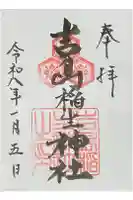 奉拝
吉山稲生神社
令和八年一月五日